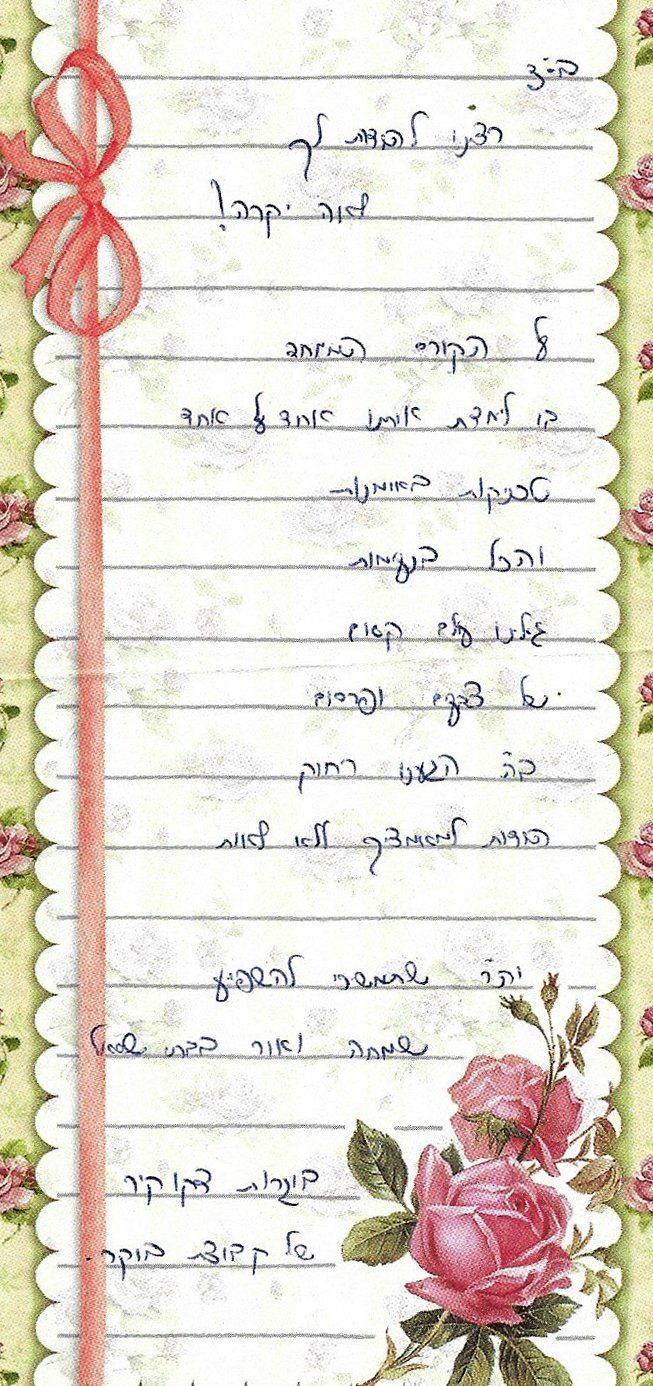 בס״ד
רצינו להודות לך
לאה יקרה!
על הקורס המיוחד
בו לימדת אותנו אחד על אחד
טכניקות באומנות
והכל בנעימות
גילינו עולם קסום
של צבעים ופרסום
ב״ה הגענו רחוק
הודות למאמציך ללא לאות
יה״ר שתמשיכי להשפיע
שמחה ואור בבתי ישראל
בוגרות דקו קיר
של קבוצת בוקר.